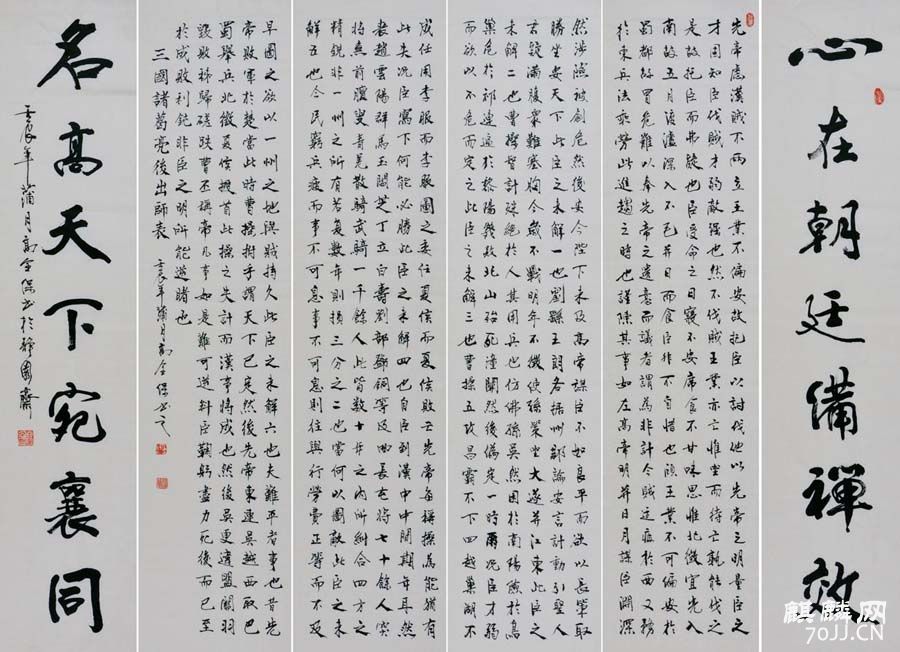 心在朝廷備禪效
先帝慮漢賊不兩立王業不偏安故托臣以討賊也以先帝之明量臣之
才固知臣伐賊才弱敵强也然不伐賊王業亦亡惟坐而待亡孰能伐之
是故托臣而弗疑也臣受命之日寢不安席食不甘味思惟北徵宜先入
南故五月渡瀘深入不毛并日而食臣非不自惜也顧王業不可偏安於
蜀都故冒危難以奉先帝之遺意而議者謂為非計今賊適疲於西又務
於東兵法乘勞此進趨之時也謹陳其事如左高帝明并日月謀臣淵深
然涉險被創危然後安今陛下未及高帝謀臣不如良平而欲以長策取
勝坐定天下此臣之未解一也劉繇王朗各據州郡論安言計動引聖人
群疑滿腹衆難塞胸今歲不戰明年不徵使孫策坐大遂并江東此臣之
未解二也曹操智計殊絕於人其用兵也仿佛孫吳然困於南陽險於烏
巢危於祁連逼於黎陽幾敗北山殆死潼關然後偽定一時爾況臣才弱
而欲以不危而定之此臣之未解三也曹操五攻昌霸不下四越巢湖不
成任用李服而李服圖之委任夏侯而夏侯敗亡先帝每稱操為能猶有
此失況臣駑下何能必勝此臣之未解四也自臣到漢中中間期年耳然
喪趙雲陽群馬玉閻芝丁立白壽劉郃鄧銅等及曲長屯將七十餘人突
將無前賨叟青羌散騎武騎一千餘人此皆數十年之內所糾合四方之
精銳非一州之所有若復數年則損三分之二也當何以圖敵此臣之未
解五也今民窮兵疲而事不可息事不可息則住與行勞費正等而不及
早圖之欲以一州之地與賊持久此臣之未解六也夫難平者事也昔先
帝敗軍於楚當此時曹操拊手謂天下已定然後先帝東連吳越西取巴
蜀舉兵北徵夏侯授首此操之失計而漢事將成也然後吳更違盟關羽
毀敗秭歸蹉跌曹丕稱帝凡事如是難可逆料臣鞠躬盡力死後而已至
於成敗利鈍非臣之明所能逆睹也
壬辰年蒲月高全保書之
三國諸葛亮後出師表
名高天下宛襄同
壬辰年蒲月高全保書於園齋
麒麟网
70JJ.CN